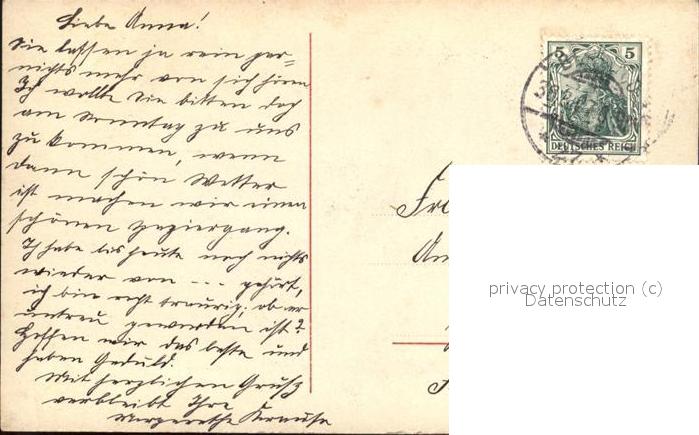 Liebe Anna!
Sie lassen ja rein gar=
nichts mehr von sich hören
Ich wollte Sie bitten doch
am Sonntag zu uns
zu kommen, wenn
dann schön Wetter
ist machen wir einen
schönen
Ich habe bis heute noch nichts
wieder von --- gehört,
ich bin recht traurig; ob er
untreu geworden ist?
Hoffen wir das beste und
haben Geduld.
Mit herzlichen Gruß
verbleibt Ihre
Margarethe Krause
5 5
DEUTSCHES REICH
Fr
An
privacy protection (c)
Datenschutz